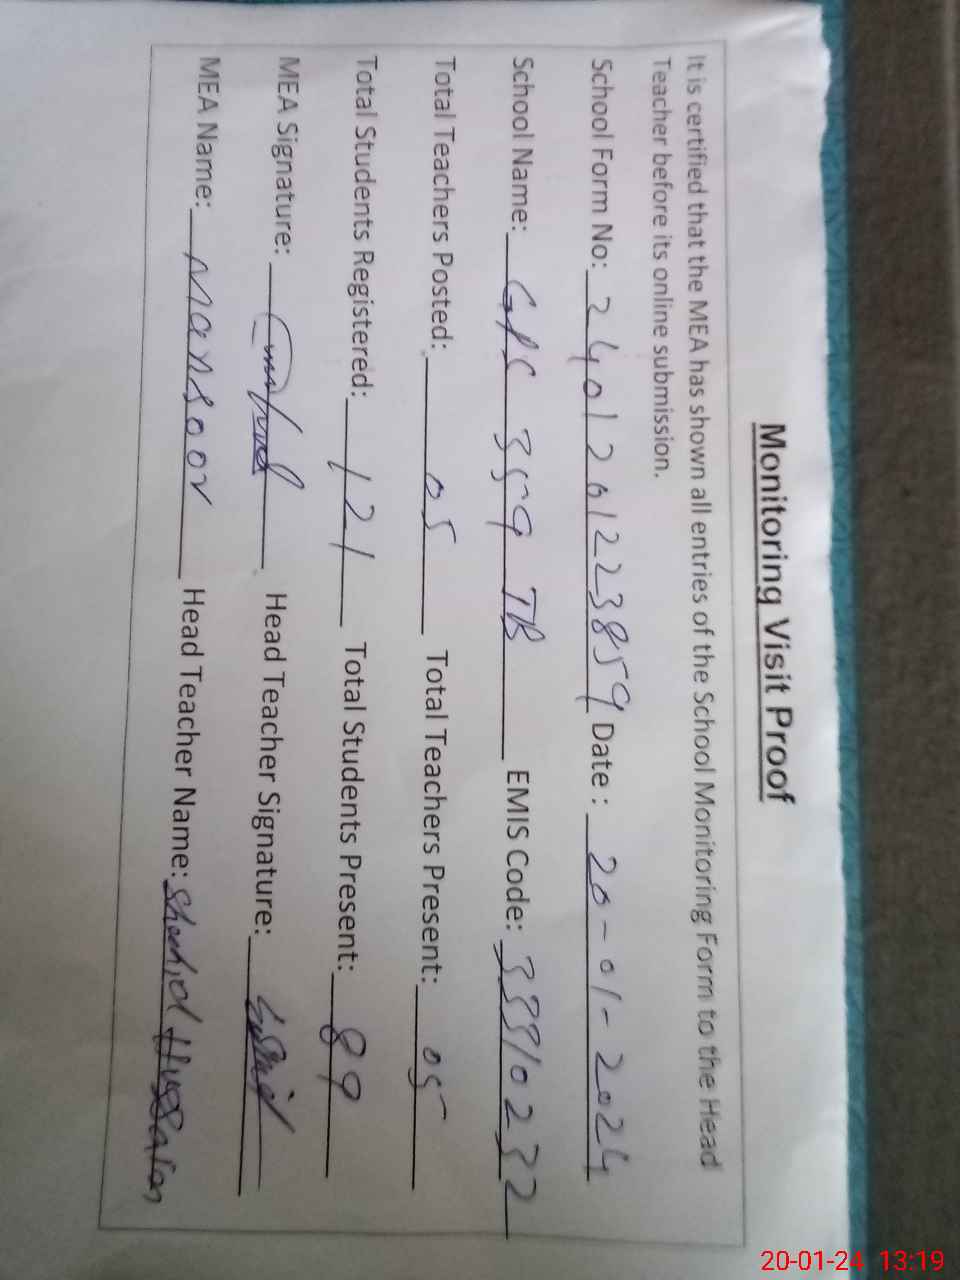 Monitoring Visit Proof
It is certified that the MEA has shown all entries of the School Monitoring Form to the Head
Teacher before its online submission.
School Form No: 2401201223859 Date: 20-01-2024
School Name: GPS 359 TR EMIS Code: 33310232
Total Teachers Posted: 05 Total Teachers Present: 05
Total Students Registered: 121 Total Students Present: 89
MEA Signature: Head Teacher Signature:
MEA Name: Mansoor Head Teacher Name: Shahid Hussain
20-01-24 13:19